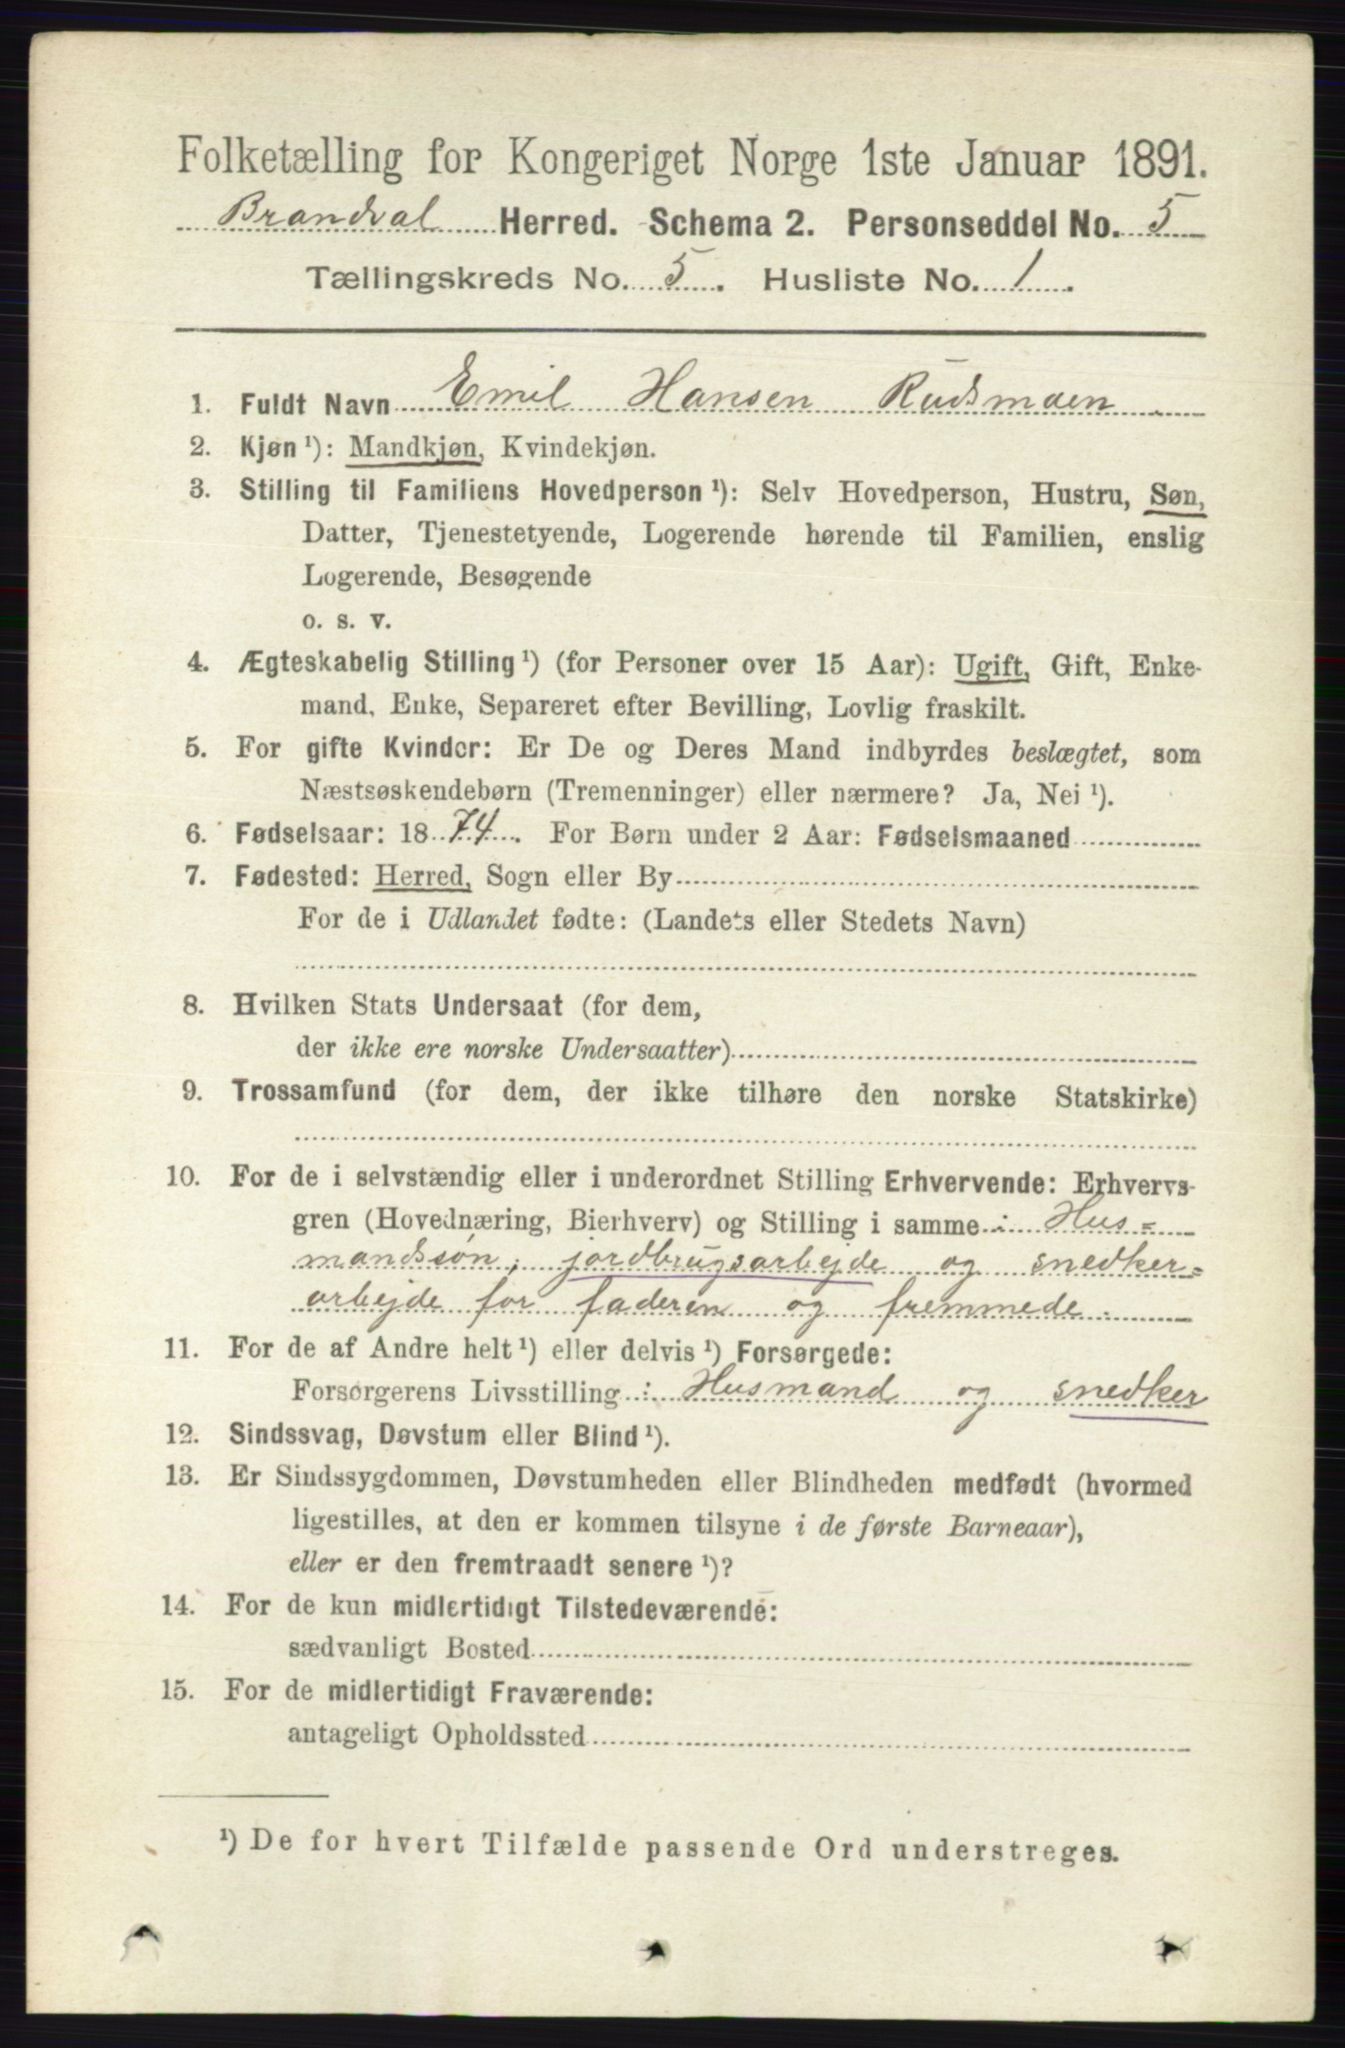 Folketælling for Kongeriget Norge 1ste Januar 1891.
Brandval Herred. Schema 2. Personseddel No. 5
Tællingskreds No. 5. Husliste No. 1.
1. Fuldt Navn Emil Hansen Rudsmoen
2. Kjøn ¹): Mandkjøn, Kvindekjøn.
3. Stilling til Familiens Hovedperson ¹): Selv Hovedperson, Hustru, Søn,
Datter, Tjenestetyende, Logerende hørende til Familien, enslig
Logerende, Besøgende
o. s. v.
4. Ægteskabelig Stilling ¹) (for Personer over 15 Aar): Ugift, Gift, Enke-
mand, Enke, Separeret efter Bevilling, Lovlig fraskilt.
5. For gifte Kvinder: Er De og Deres Mand indbyrdes beslægtet, som
Næstsøskendebørn (Tremenninger) eller nærmere? Ja, Nei ¹).
6. Fødselsaar: 1874. For Børn under 2 Aar: Fødselsmaaned
7. Fødested: Herred, Sogn eller By
For de i Udlandet fødte: (Landets eller Stedets Navn)
8. Hvilken Stats Undersaat (for dem,
der ikke ere norske Undersaatter)
9. Trossamfund (for dem, der ikke tilhøre den norske Statskirke)
10. For de i selvstændig eller i underordnet Stilling Erhvervende: Erhvervs-
gren (Hovednæring, Bierhverv) og Stilling i samme : Hus=
mandssøn, jordbrugsarbejde og snedker=
arbejde for faderen og fremmede.
11. For de af Andre helt ¹) eller delvis ¹) Forsørgede:
Forsørgerens Livsstilling : Husmand og snedker
12. Sindssvag, Døvstum eller Blind ¹).
13. Er Sindssygdommen, Døvstumheden eller Blindheden medfødt (hvormed
ligestilles, at den er kommen tilsyne i de første Barneaar),
eller er den fremtraadt senere ¹)?
14. For de kun midlertidigt Tilstedeværende:
sædvanligt Bosted
15. For de midlertidigt Fraværende:
antageligt Opholdssted
¹) De for hvert Tilfælde passende Ord understreges.